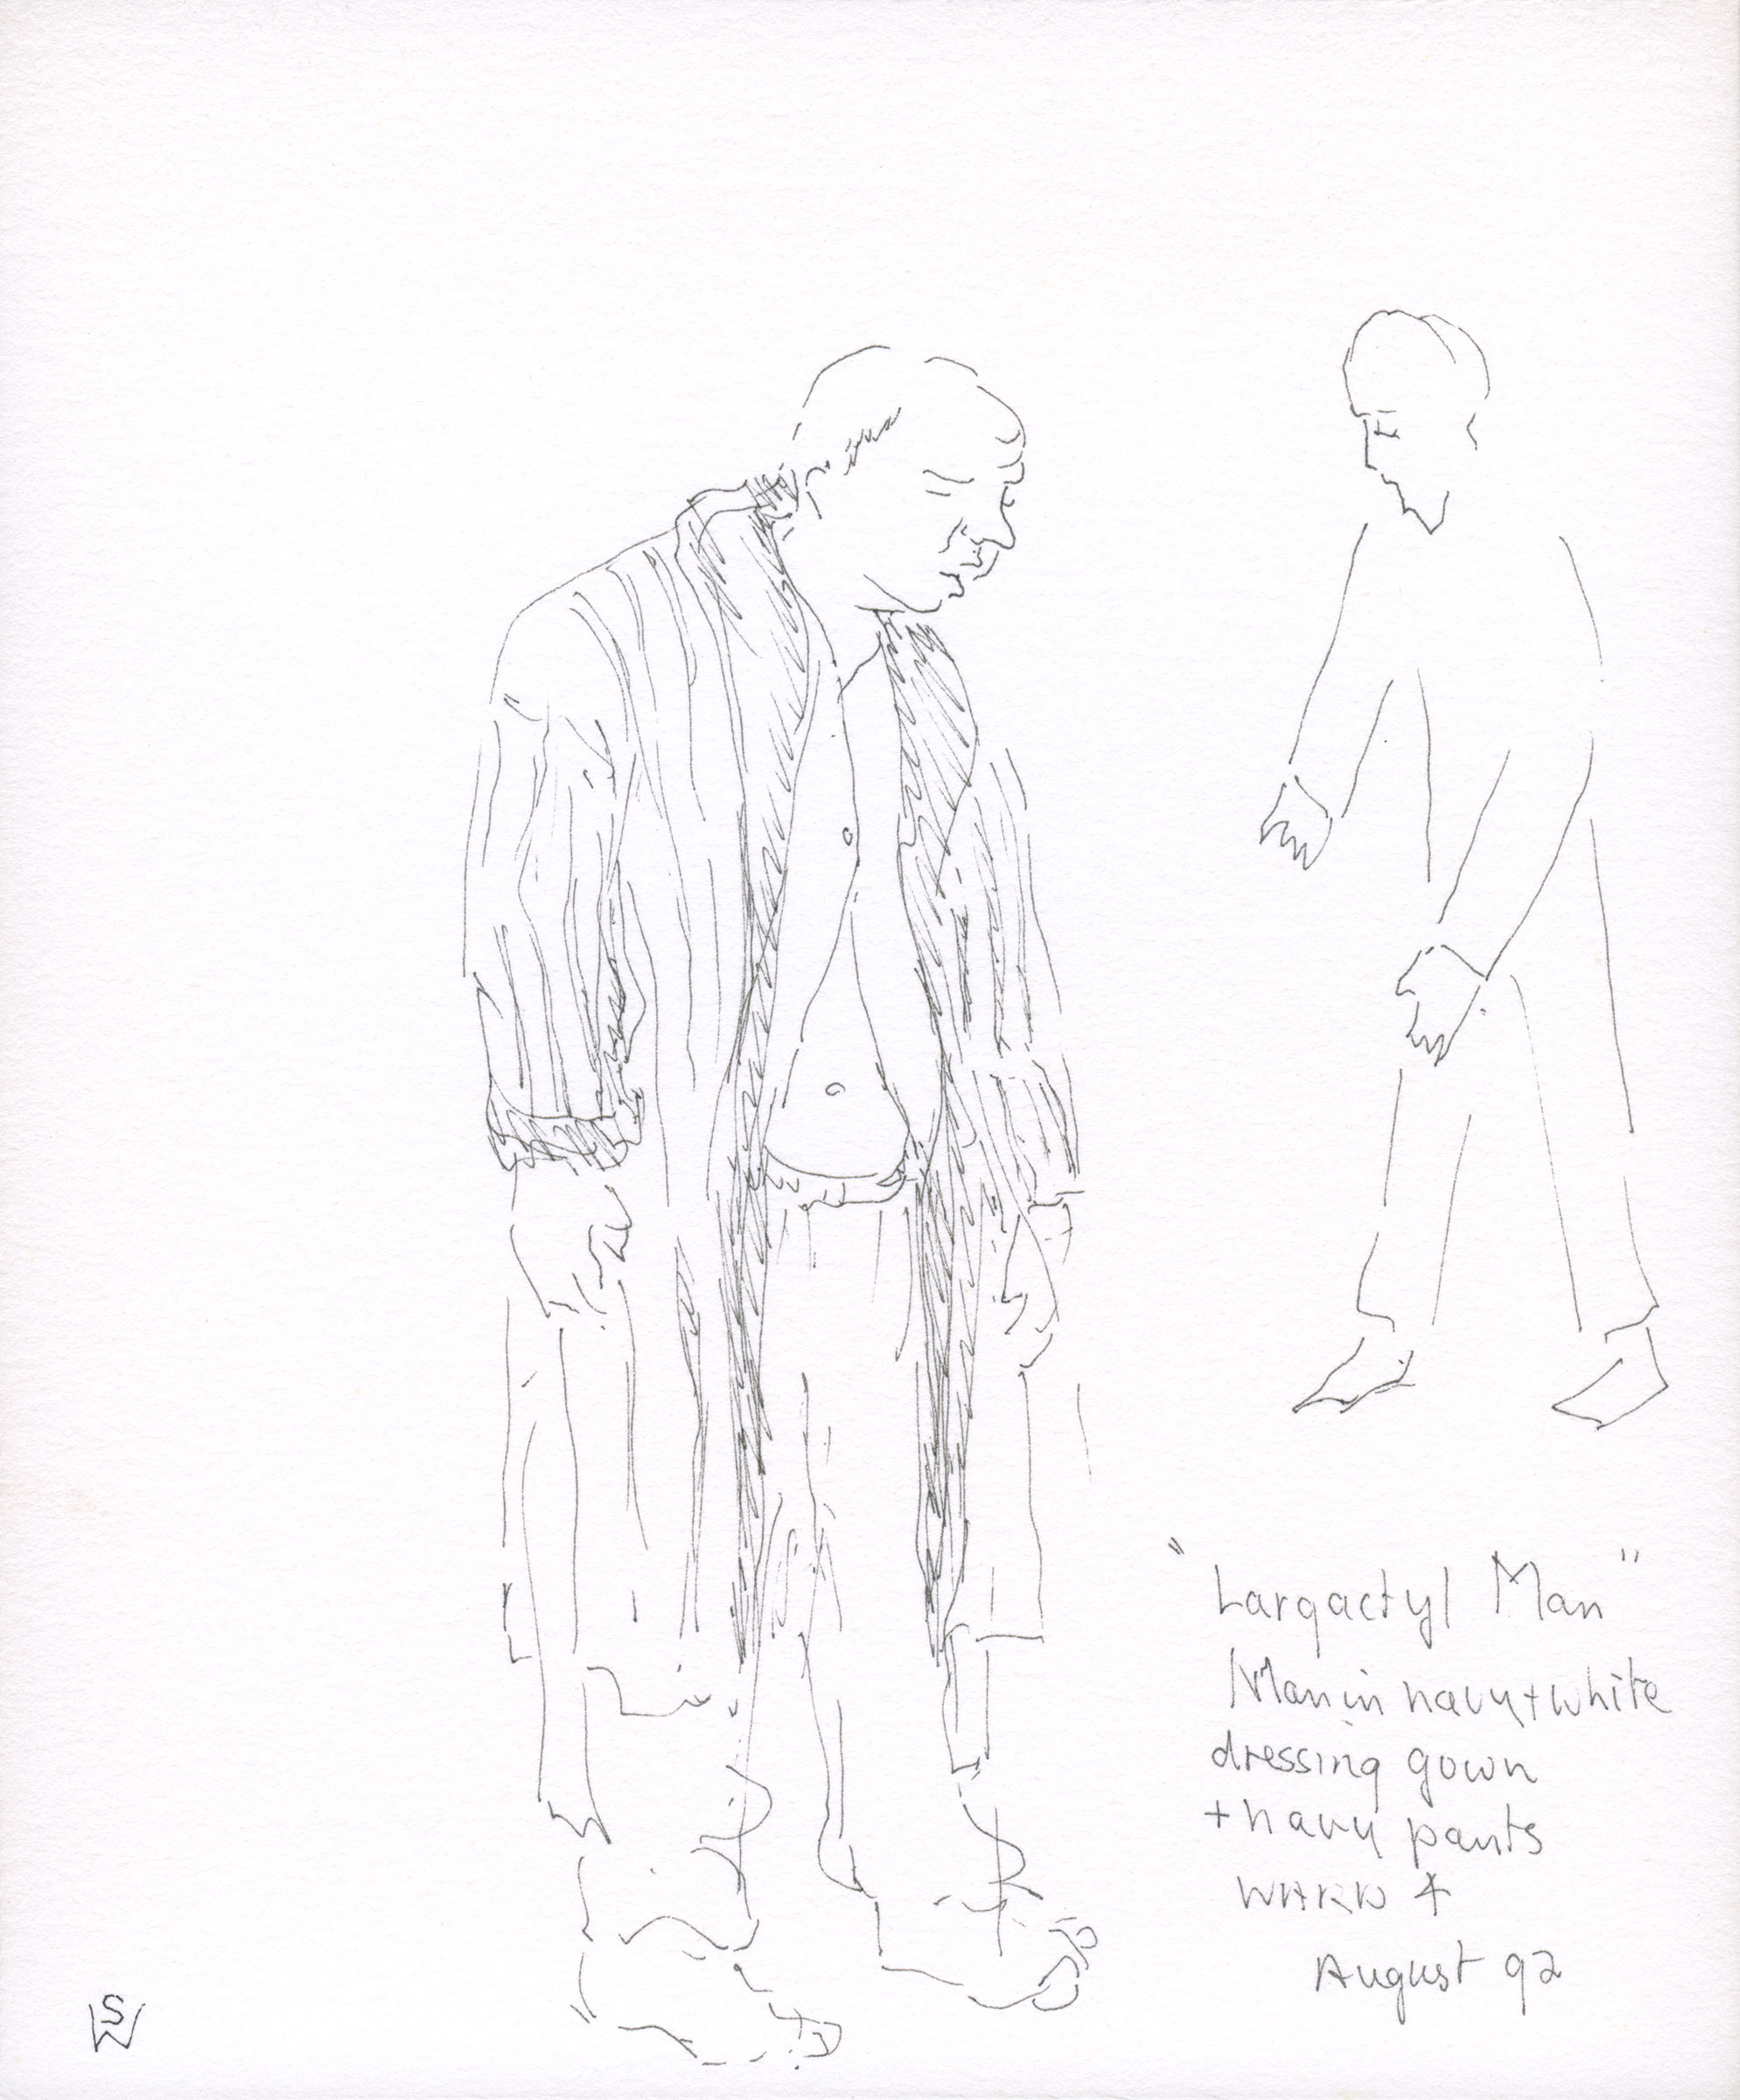 "Largactyl Man"
Man in navy + white
dressing gown
+ navy pants
WARD 4
August 92
SW